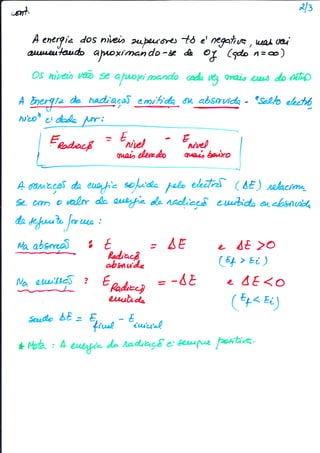 cont. 2/3
A energia dos níveis superiores tb é negativa, mas vai
aumentando aproximando-se de 0J (qdo n=∞)
Os níveis vão se aproximando cada vez mais uns do outro
A Energia da radiação emitida ou absorvida - "Salto electró
nico" é dada por:
E Radiação = E nível mais elevado - E nível mais baixo
A variação da energia sofrida pelo electrão (ΔE) relaciona
se com o valor da energia da radiação emitida ou absorvida
da seguinte forma:
Na absorção : E Radiação absorvida = ΔE e ΔE >0
(Ef > Ei)
Na emissão : E Radiação emitida = -ΔE e ΔE <0
(Ef < Ei)
Sendo ΔE = E final - E inicial
* Nota : A energia da radiação é sempre positiva.